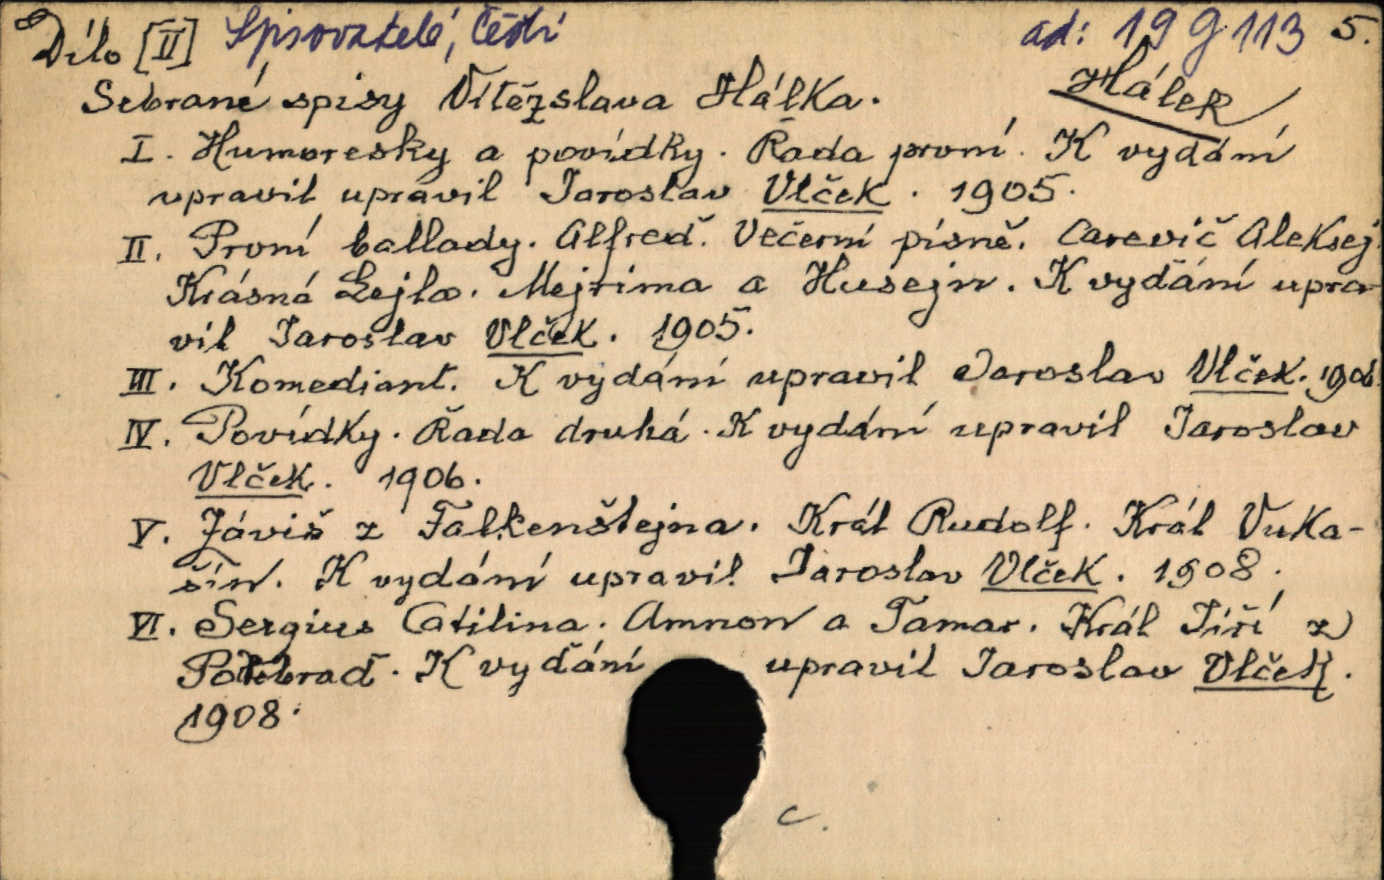 Dílo [II] Spisovatelé, čeští ad: 19 g 113 5.
Sebrané spisy Vítězslava Hálka. Hálek
I. Humoresky a povídky. Řada první. K vydání
upravil upravil Jaroslav Vlček. 1905.
II. První ballady. Alfred. Večerní písně. Carevič Aleksej.
Krásná Lejla. Mejrima a Husejn. K vydání upra-
vil Jaroslav Vlček. 1905.
III. Komediant. K vydání upravil Jaroslav Vlček. 1906.
IV. Povídky. Řada druhá. K vydání upravil Jaroslav
Vlček. 1906.
V. Záviš z Falkenštejna. Král Rudolf. Král Vuka-
šín. K vydání upravil Jaroslav Vlček. 1908.
VI. Sergius Catilina. Amnon a Tamar. Král Jiří z
Poděbrad. K vydání upravil Jaroslav Vlček.
1908.
C.